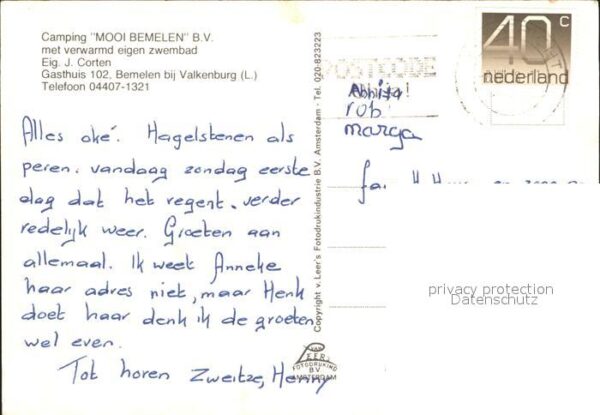 Camping "MOOI BEMELEN" B.V.
met verwarmd eigen zwembad
Eig. J. Corten
Gasthuis 102, Bemelen bij Valkenburg (L.)
Telefoon 04407-1321
Alles oké. Hagelstenen als
peren. vandaag zondag eerste
dag dat het regent. verder
redelijk weer. Groeten aan
allemaal. Ik weet Anneke
haar adres niet, maar Henk
doet haar denk ik de groeten
wel even.
Tot horen Zweitze, Henny
Copyright v. Leer's Fotodrukindustrie B.V. Amsterdam - Tel. 020-823223
VAN
LEER
FOTODRUKIND
BV
AMSTERDAM
POSTCODE
40 c
nederland
rob
marga
fam. H.
privacy protection
Datenschutz